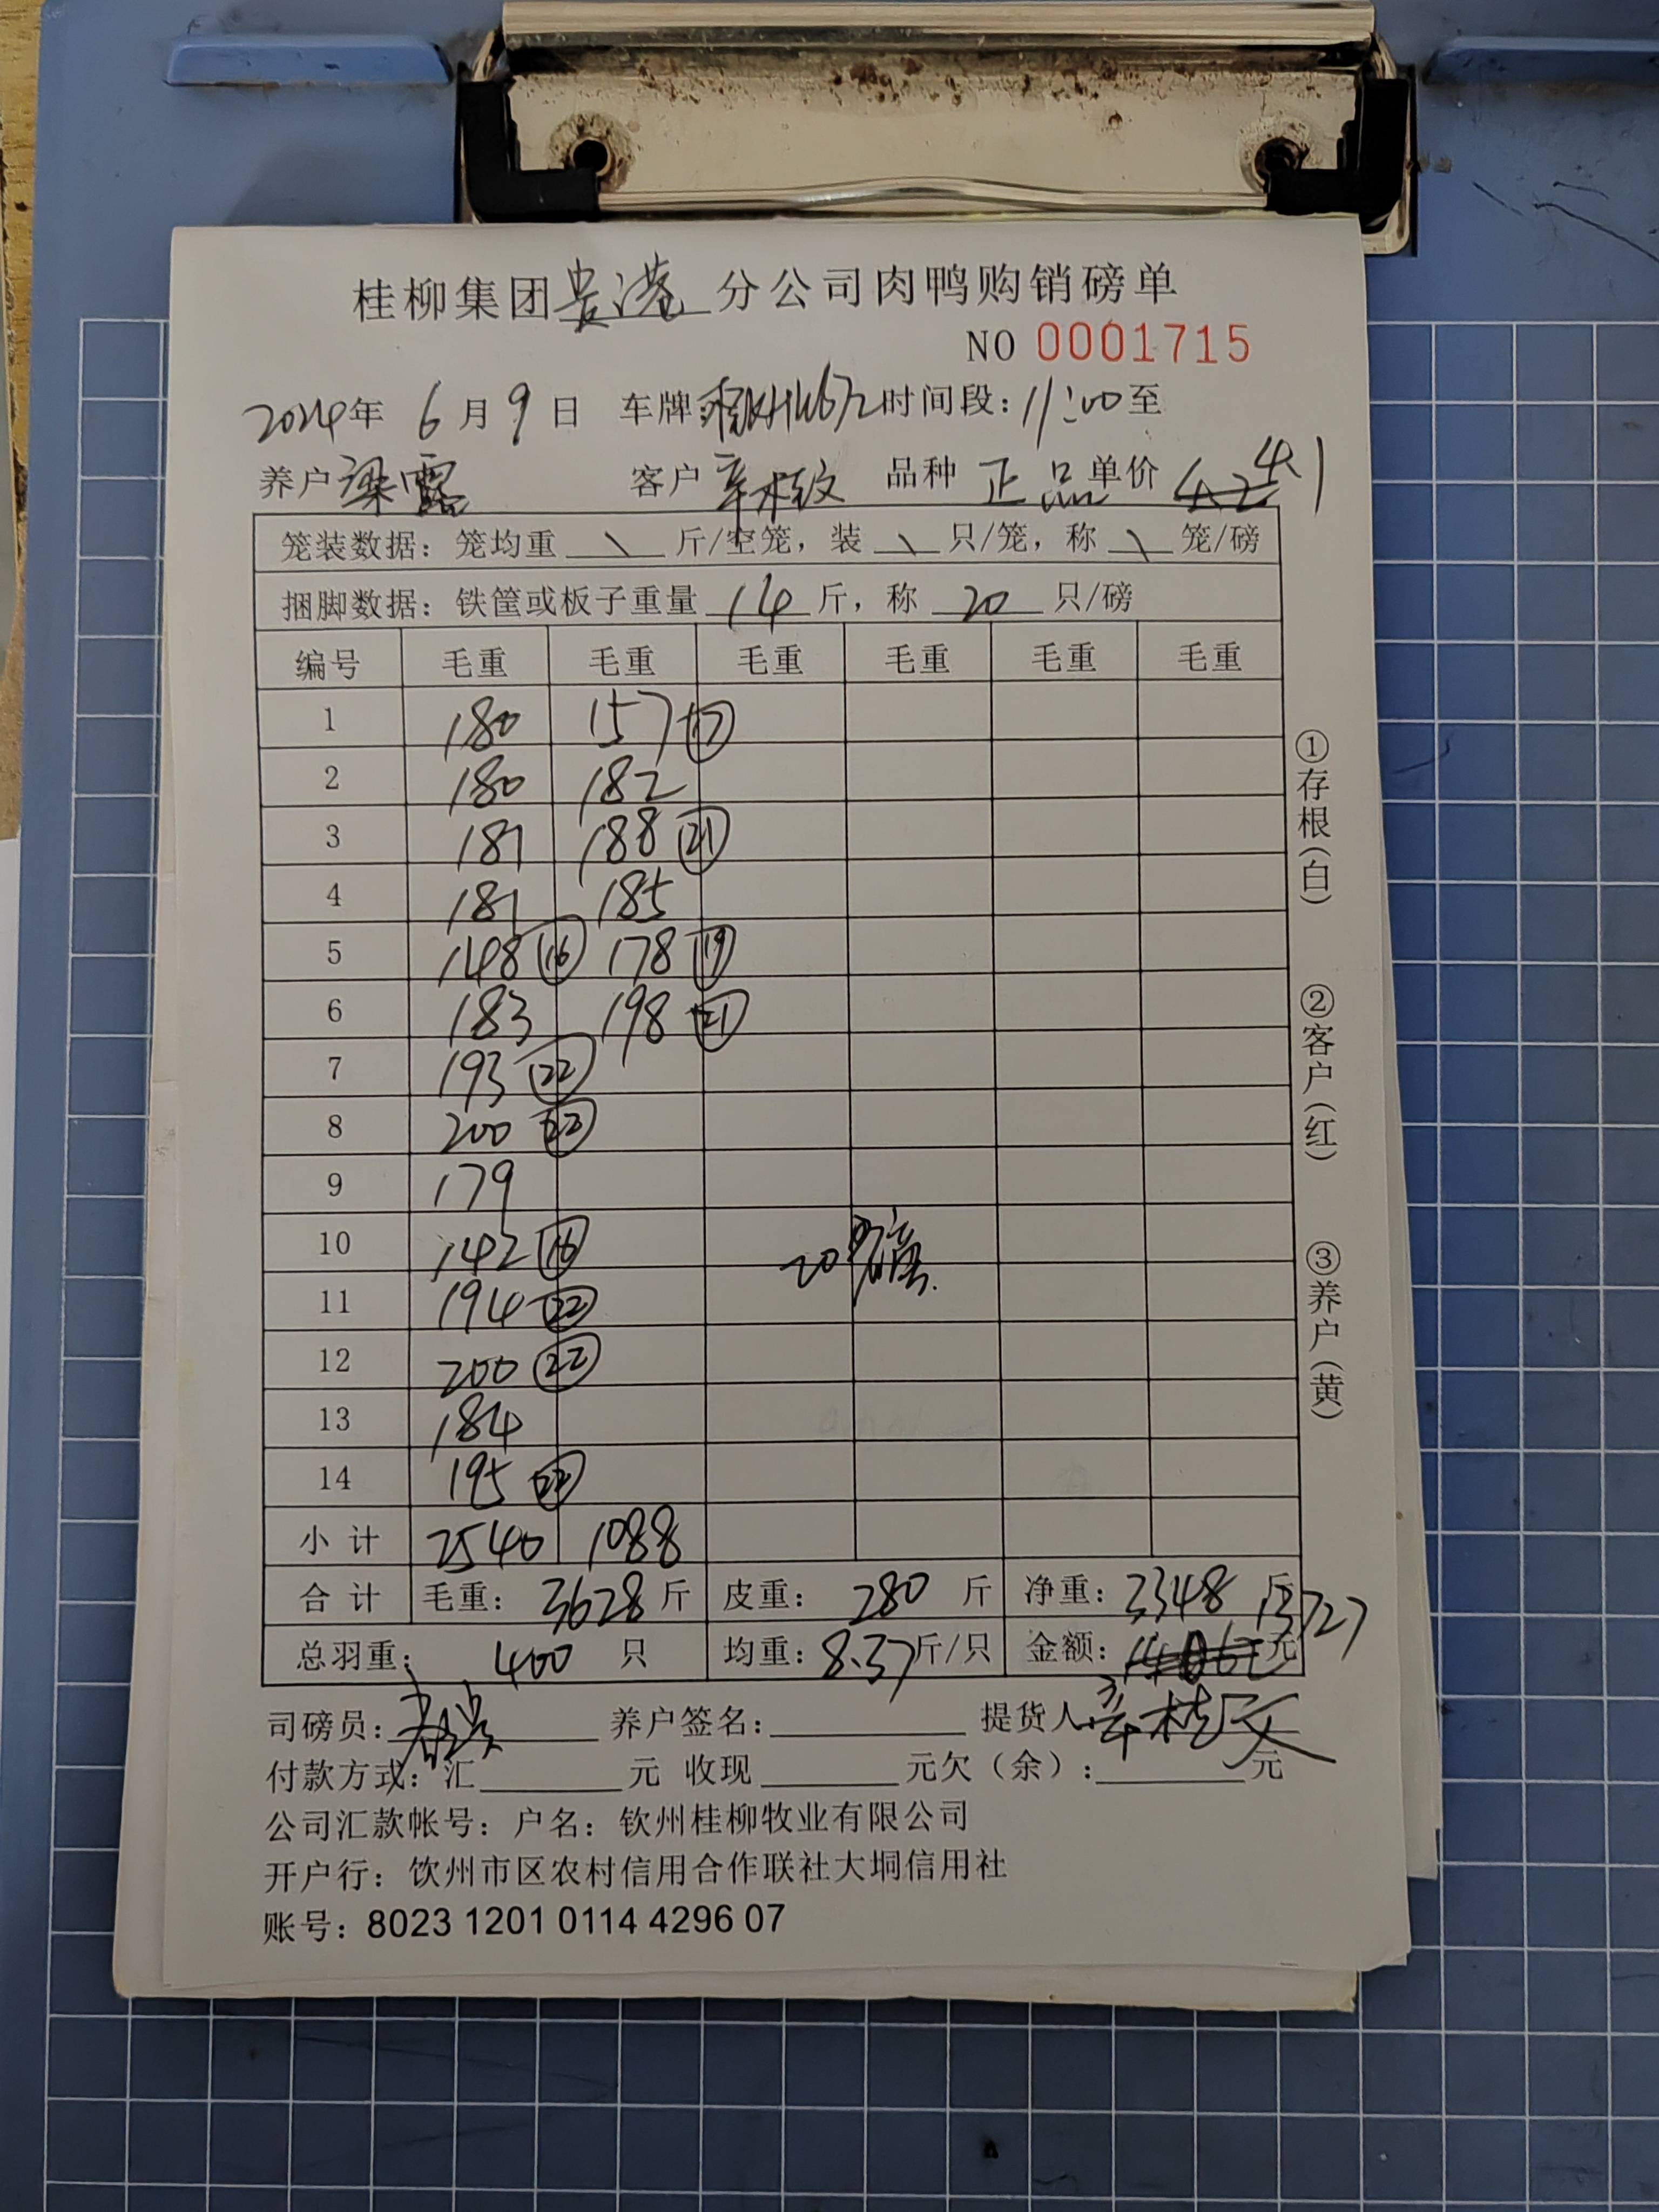 桂柳集团贵港分公司肉鸭购销磅单
NO 0001715
2024年 6月9日 车牌 时间段:11:00至
养户 梁露 客户 辛桂文 品种 正品 单价 4.1
笼装数据: 笼均重 \ 斤/空笼, 装 \ 只/笼, 称 \ 笼/磅
捆脚数据: 铁筐或板子重量 14 斤, 称 20 只/磅
编号 毛重 毛重 毛重 毛重 毛重 毛重
1 180 157 ⑰
2 180 182
3 181 188 ㉑
4 181 185
5 148 ⑯ 178 ⑲
6 183 198 ㉑
7 193 ㉒
8 200 ㉒
9 179
10 142 ⑯
11 194 ㉒
12 200 ㉒
13 184
14 195 ㉒
20磅
小计 2540 1088
合计 毛重: 3628 斤 皮重: 280 斤 净重: 3348 斤
总羽重: 400 只 均重: 8.37斤/只 金额: 13727元
司磅员: 养户签名: 提货人: 辛桂文
付款方式: 汇 元 收现 元欠(余): 元
公司汇款帐号: 户名: 钦州桂柳牧业有限公司
开户行: 钦州市区农村信用合作联社大垌信用社
账号: 8023 1201 0114 4296 07
①存根(白)
②客户(红)
③养户(黄)